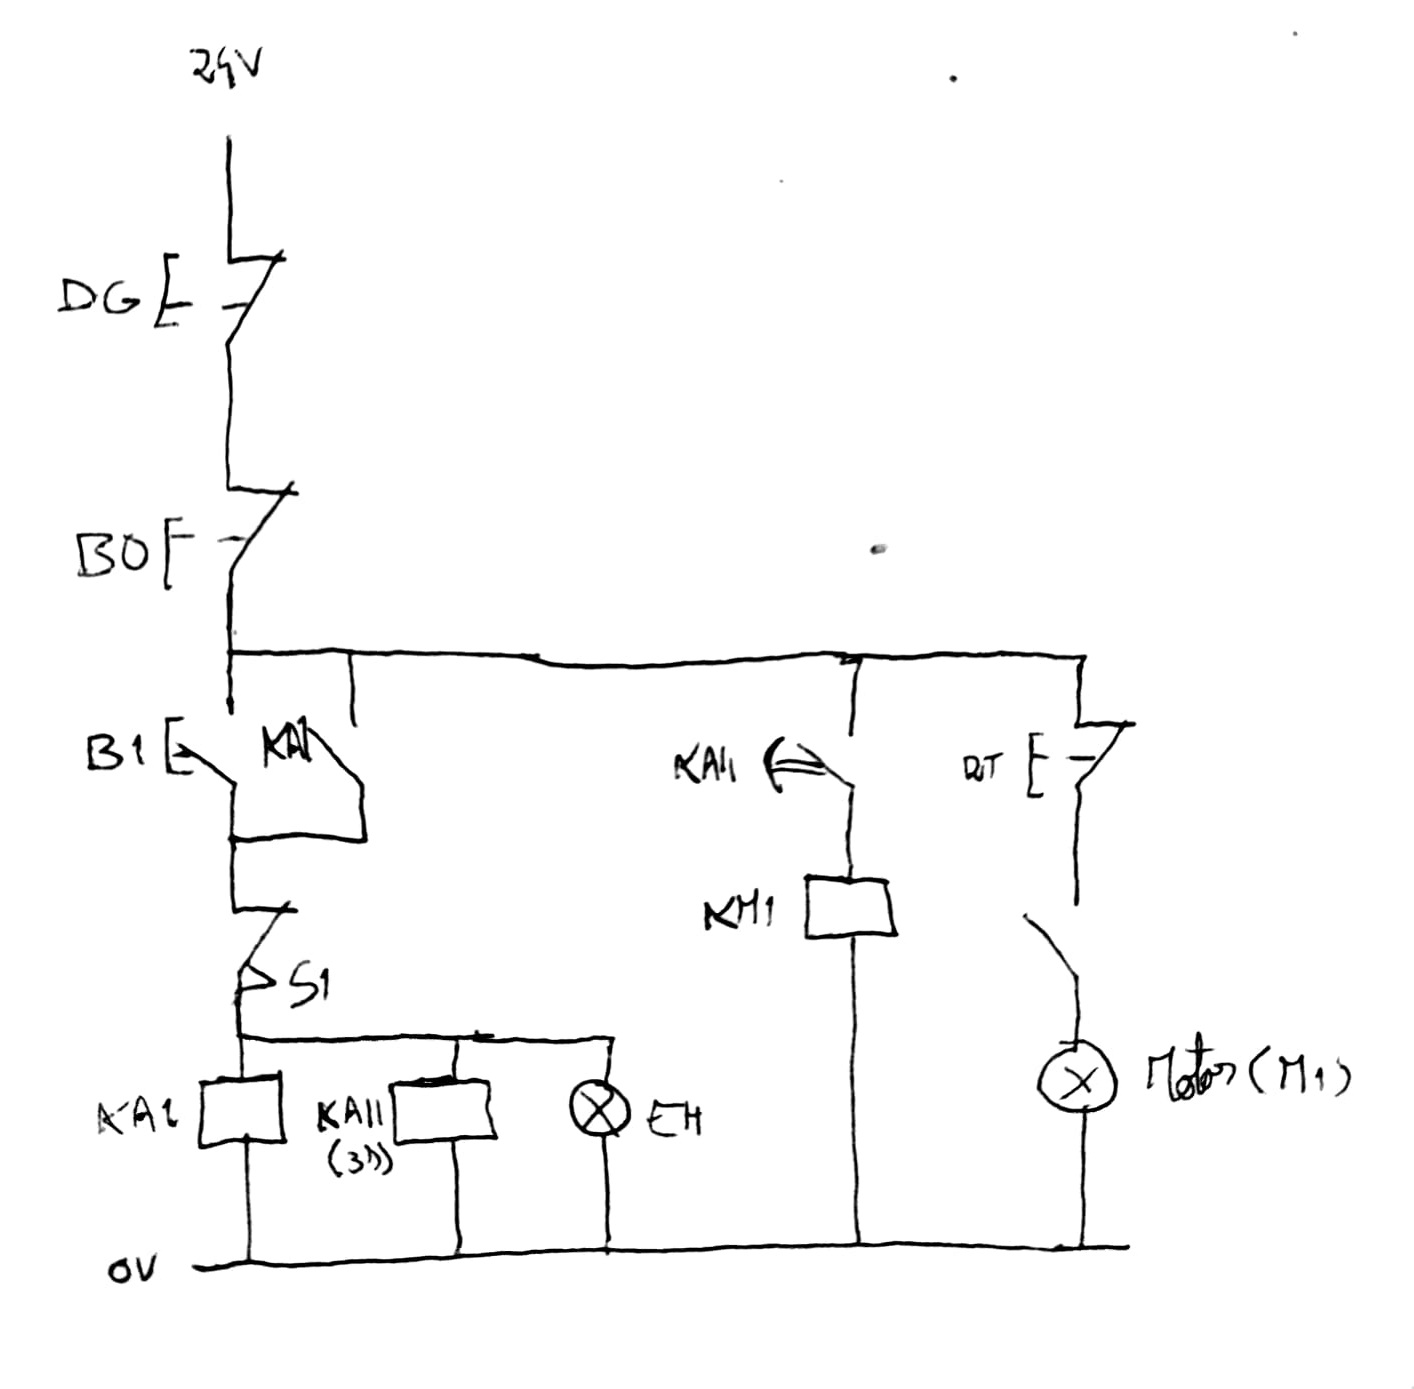 24V
DG
B0
B1
KA1
KA11
DT
S1
KM1
KA1
KA11
(3s)
EH
Motor (M1)
0V